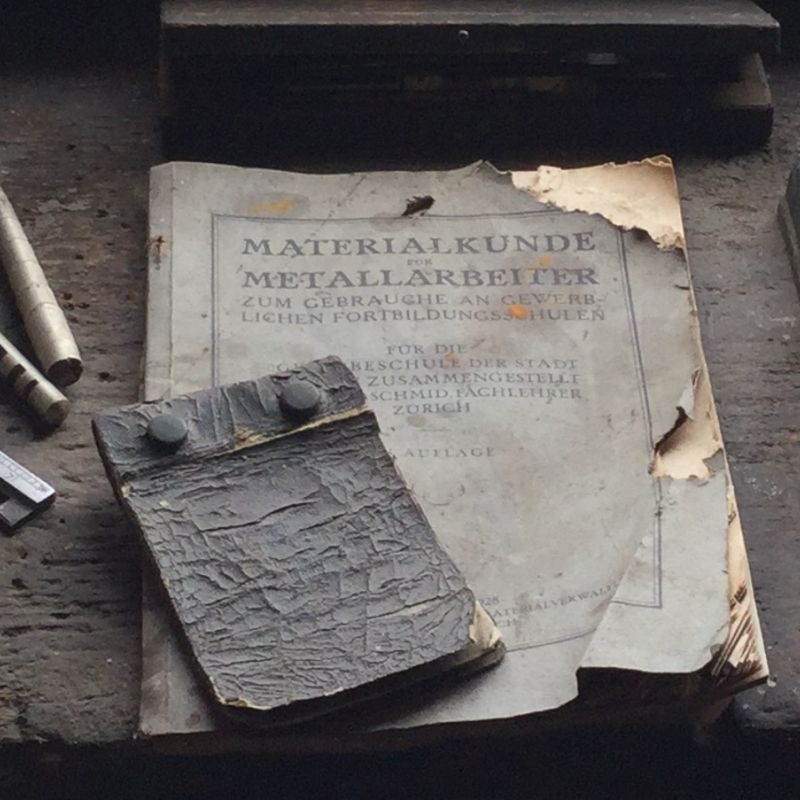 MATERIALKUNDE
FÜR
METALLARBEITER
ZUM GEBRAUCHE AN GEWERB-
LICHEN FORTBILDUNGSSCHULEN
FÜR DIE
BESCHULE DER STADT
ZUSAMMENGESTELLT
SCHMID, FACHLEHRER
ZÜRICH
AUFLAGE